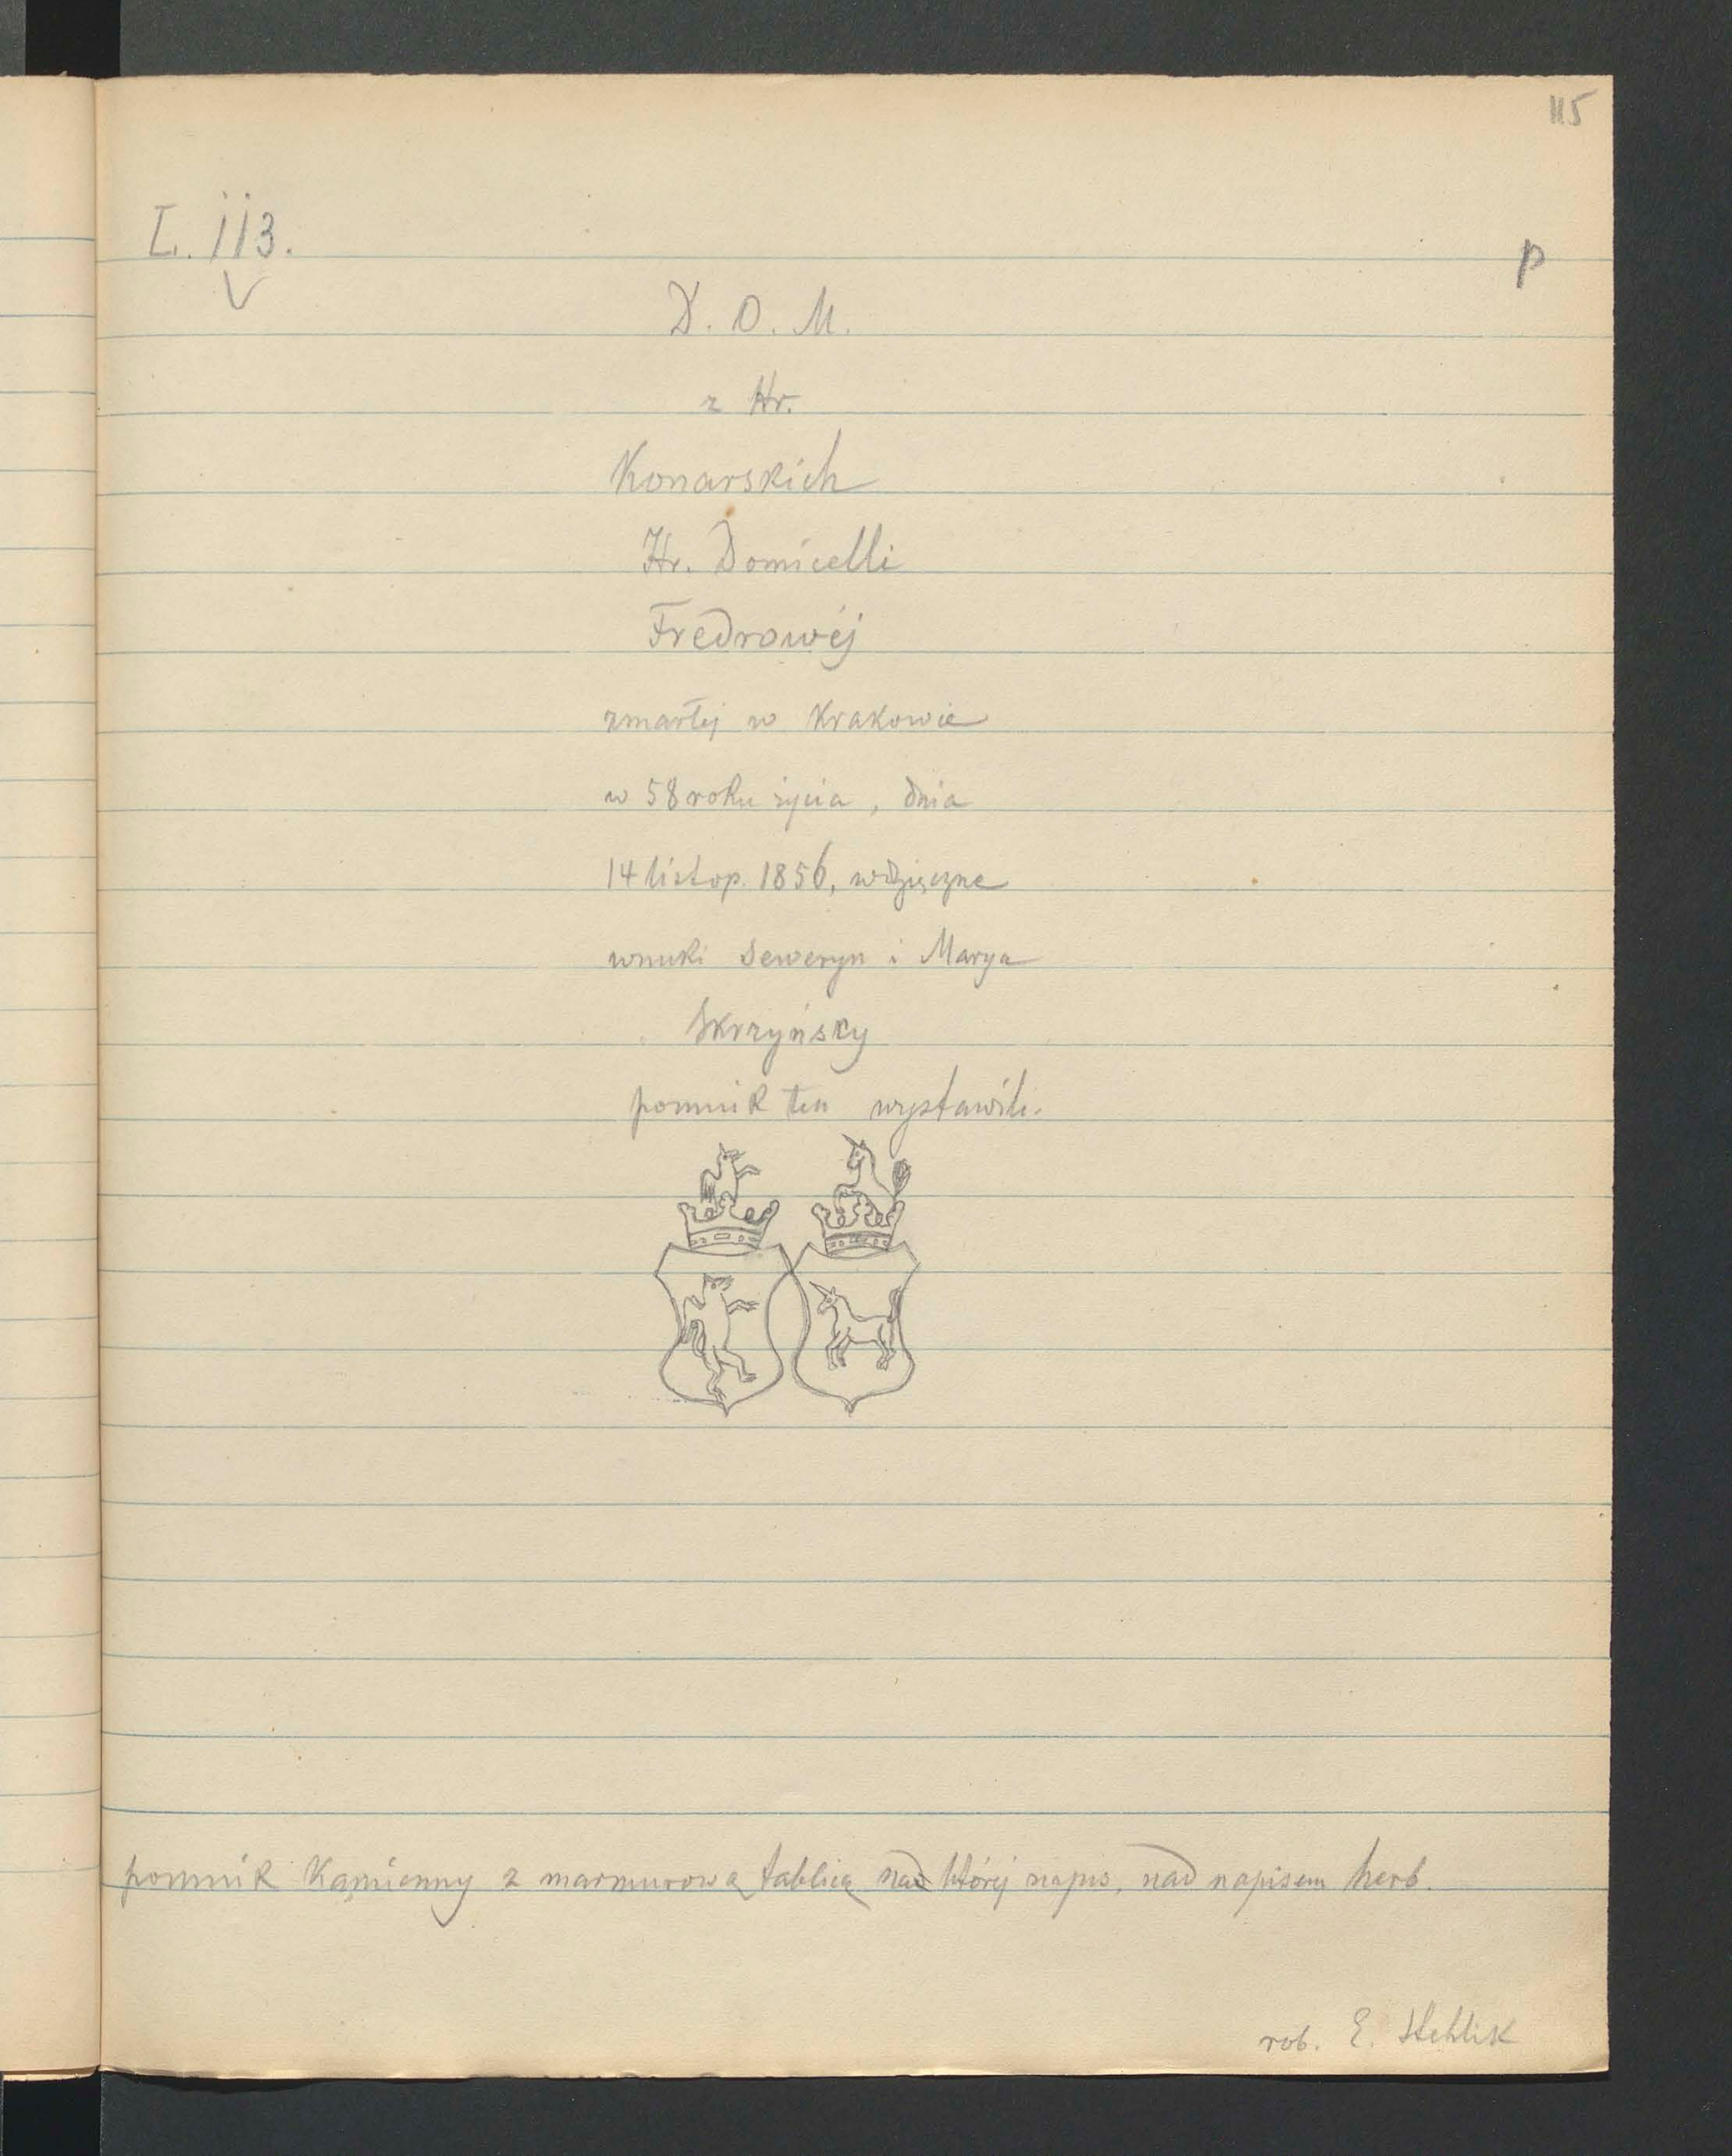 115
L. 113.
p
D. O. M.
z Hr.
Konarskich
Hr. Domicelli
Fredrowéj
zmarłéj w Krakowie
w 58 roku życia, dnia
14 listop. 1856, wdzięczne
wnuki Seweryn i Marya
Skrzyńscy
pomnik ten wystawili.
pomnik Kamienny z marmurową tablicą nad której napis, nad napisem herb.
rob. E. Stehlik